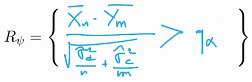 R_ψ = { (X̄_n - Ȳ_m) / √(σ̂_d²/n + σ̂_c²/m) > η_α }